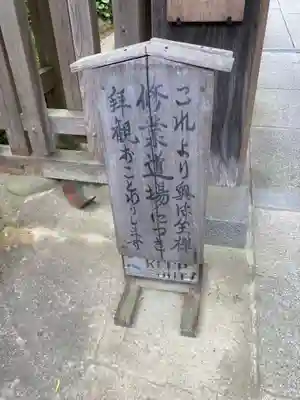 これより奥は全禅
修業道場につき
拝観おことわりします
KEEP